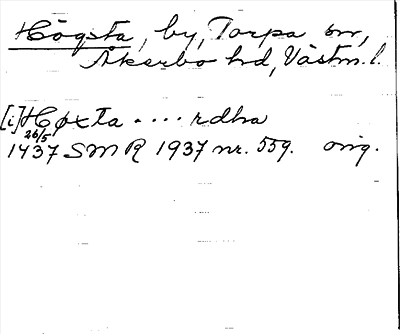 Högsta, by, Torpa sn,
Åkerbo hd, Västm. l.
[i] Høxta .... rdha
26/5
1437 SMR 1937 nr. 559. orig.